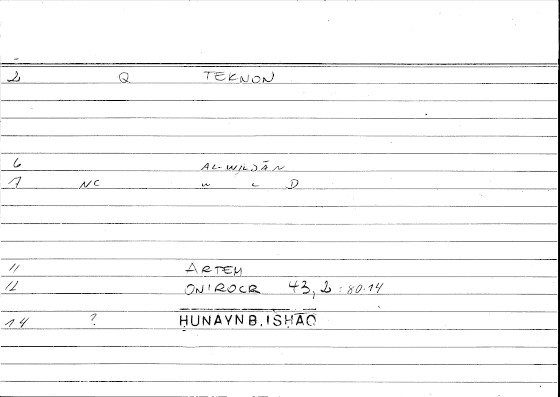 2 Q TEKNON
6 AL-WILDĀN
7 NC W L D
11 ARTEM
12 ONIROCR 43,2:80.14
14 ? ḤUNAYN B. ISḤĀQ